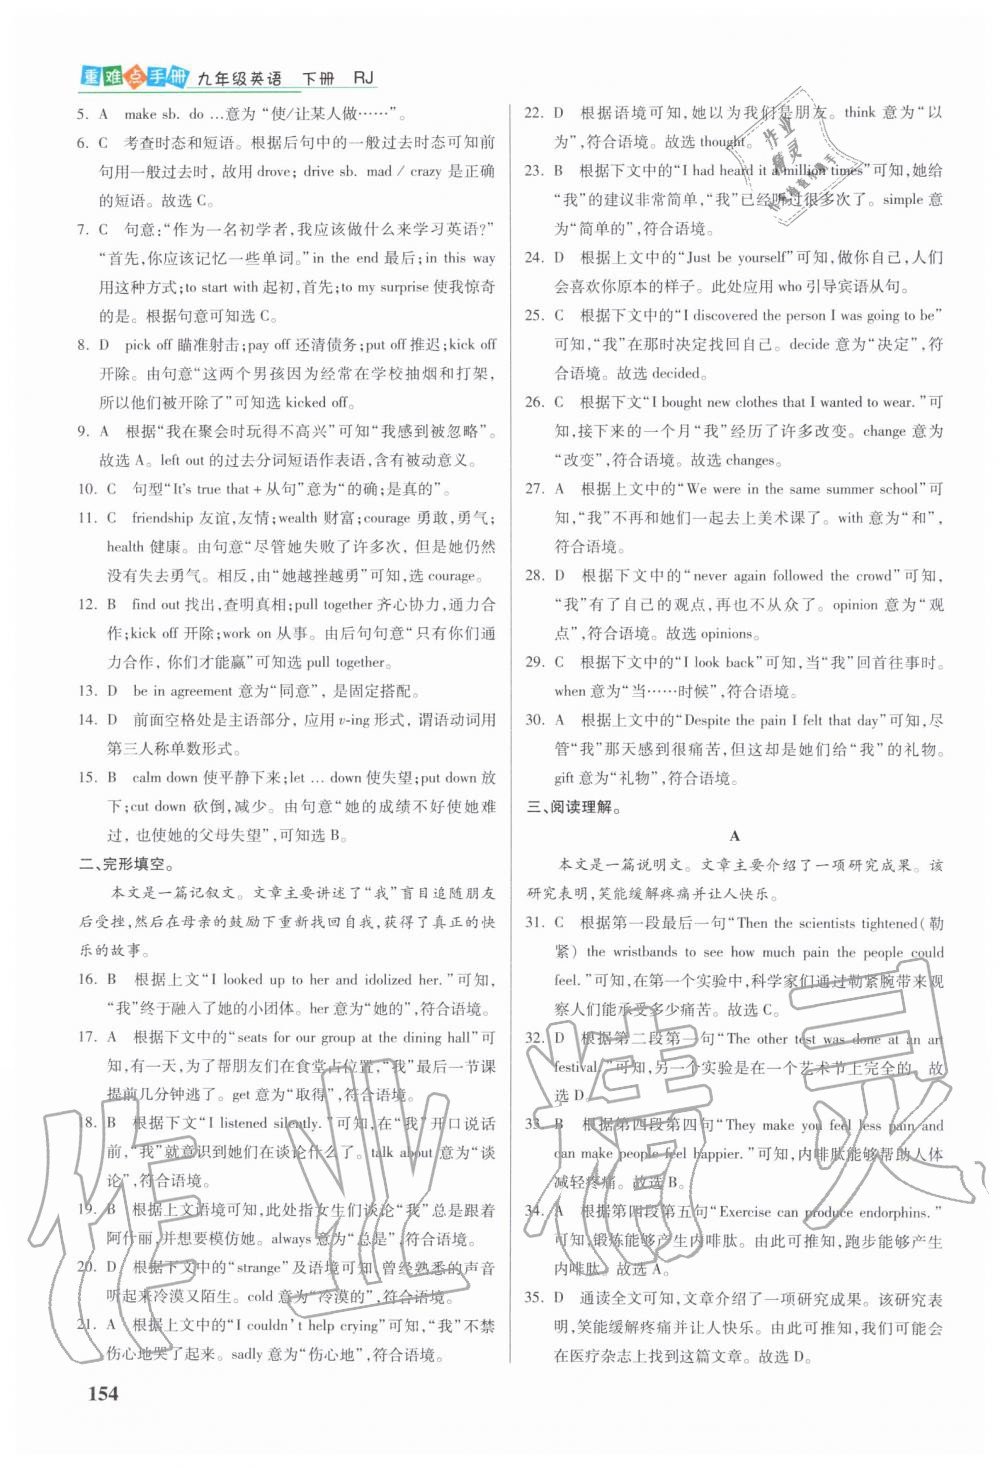 重难点手册 九年级英语 下册 RJ
5. A make sb. do …意为“使/让某人做……”。
6. C 考查时态和短语。根据后句中的一般过去时态可知用一般过去时，故用 drove；drive sb. mad / crazy 是正确的短语。故选 C。
7. C 句意：“作为一名初学者，我应该做什么来学习英语？”
“首先，你应该记忆一些单词。”in the end 最后；in this way
用这种方式；to start with 起初，首先；to my surprise 使我惊奇
的是。根据句意可知选 C。
8. D pick off 瞄准射击；pay off 还清债务；put off 推迟；kick off
开除。由句意“这两个男孩因为经常在学校抽烟和打架，
所以他们被开除了”可知选 kicked off。
9. A 根据“我在聚会时玩得不高兴”可知“我感到被忽略”。
故选 A。left out 的过去分词短语作表语，含有被动意义。
10. C 句型“It's true that + 从句”意为“的确；是真的”。
11. C friendship 友谊，友情；wealth 财富；courage 勇敢，勇气；
health 健康。由句意“尽管她失败了许多次，但是她仍然
没有失去勇气。相反，由“她越挫越勇”可知，选 courage。
12. B find out 找出，查明真相；pull together 齐心协力，通力合
作；kick off 开除；work on 从事。由后句句意“只有你们通
力合作，你们才能赢”可知选 pull together。
13. D be in agreement 意为“同意”，是固定搭配。
14. D 前面空格处是主语部分，应用 v-ing 形式，谓语动词用
第三人称单数形式。
15. B calm down 使平静下来；let … down 使失望；put down 放
下；cut down 砍倒，减少。由句意“她的成绩不好使她难
过，也使她的父母失望”，可知选 B。
二、完形填空。
本文是一篇记叙文。文章主要讲述了“我”盲目追随朋友
后受挫，然后在母亲的鼓励下重新找回自我，获得了真正的快
乐的故事。
16. B 根据上文“I looked up to her and idolized her.”可知，
“我”终于融入了她的小团体。her 意为“她的”，符合语境。
17. A 根据下文中的“seats for our group at the dining hall”可
知，有一天，为了帮朋友们在食堂占位置，“我”最后一节课
提前几分钟逃了。get 意为“取得”，符合语境。
18. B 根据下文中的“I listened silently.”可知，在“我”开口说话
前，“我”就意识到她们在谈论什么了。talk about 意为“谈
论”，符合语境。
19. B 根据上文语境可知，此处指女生们谈论“我”总是跟着
阿什丽，并想要模仿她。always 意为“总是”，符合语境。
20. D 根据下文中的“strange”及语境可知，曾经熟悉的声音
听起来冷漠又陌生。cold 意为“冷漠的”，符合语境。
21. A 根据上文中的“I couldn't help crying”可知，“我”不禁
伤心地哭了起来。sadly 意为“伤心地”，符合语境。
154
22. D 根据语境可知，她以为我们是朋友。think 意为“以
为”，符合语境。故选 thought。
23. B 根据下文中的“I had heard it a million times”可知，她给
“我”的建议非常简单，“我”已经听过很多次了。simple 意
为“简单的”，符合语境。
24. D 根据上文中的“Just be yourself”可知，做你自己，人们
会喜欢你原本的样子。此处应用 who 引导宾语从句。
25. C 根据上文中的“I discovered the person I was going to be”
可知，“我”在那时决定找回自己。decide 意为“决定”，符
合语境。故选 decided。
26. C 根据下文“I bought new clothes that I wanted to wear.”可
知，接下来的一个月“我”经历了许多改变。change 意为
“改变”，符合语境。故选 changes。
27. A 根据上文中的“We were in the same summer school”可
知，“我”不再和她们一起去上美术课了。with 意为“和”，
符合语境。
28. D 根据下文中的“never again followed the crowd”可知，
“我”有了自己的观点，再也不从众了。opinion 意为“观
点”，符合语境。故选 opinions。
29. C 根据下文中的“I look back”可知，当“我”回首往事时。
when 意为“当……时候”，符合语境。
30. A 根据上文中的“Despite the pain I felt that day”可知，尽
管“我”那天感到很痛苦，但这却是她们给“我”的礼物。
gift 意为“礼物”，符合语境。
三、阅读理解。
A
本文是一篇说明文。文章主要介绍了一项研究成果。该
研究表明，笑能缓解疼痛并让人快乐。
31. C 根据第一段最后一句“Then the scientists tightened（勒
紧）the wristbands to see how much pain the people could
feel.”可知，在第一个实验中，科学家们通过勒紧腕带来观
察人们能承受多少痛苦。故选 C。
32. D 根据第二段第一句“The other test was done at an art
festival.”可知，另一个实验是在一个艺术节上完全的。故
选 D。
33. B 根据第四段第四句“They make you feel less pain and
can make people feel happier.”可知，内啡肽能够帮助人体
减轻疼痛。故选 B。
34. A 根据第四段第五句“Exercise can produce endorphins.”
可知，锻炼能够产生内啡肽。由此可推知，跑步能够产生
内啡肽。故选 A。
35. D 通读全文可知，文章介绍了一项研究成果。该研究表
明，笑能缓解疼痛并让人快乐。由此可推知，我们可能会
在医疗杂志上找到这篇文章。故选 D。
作业精灵
作业
精灵